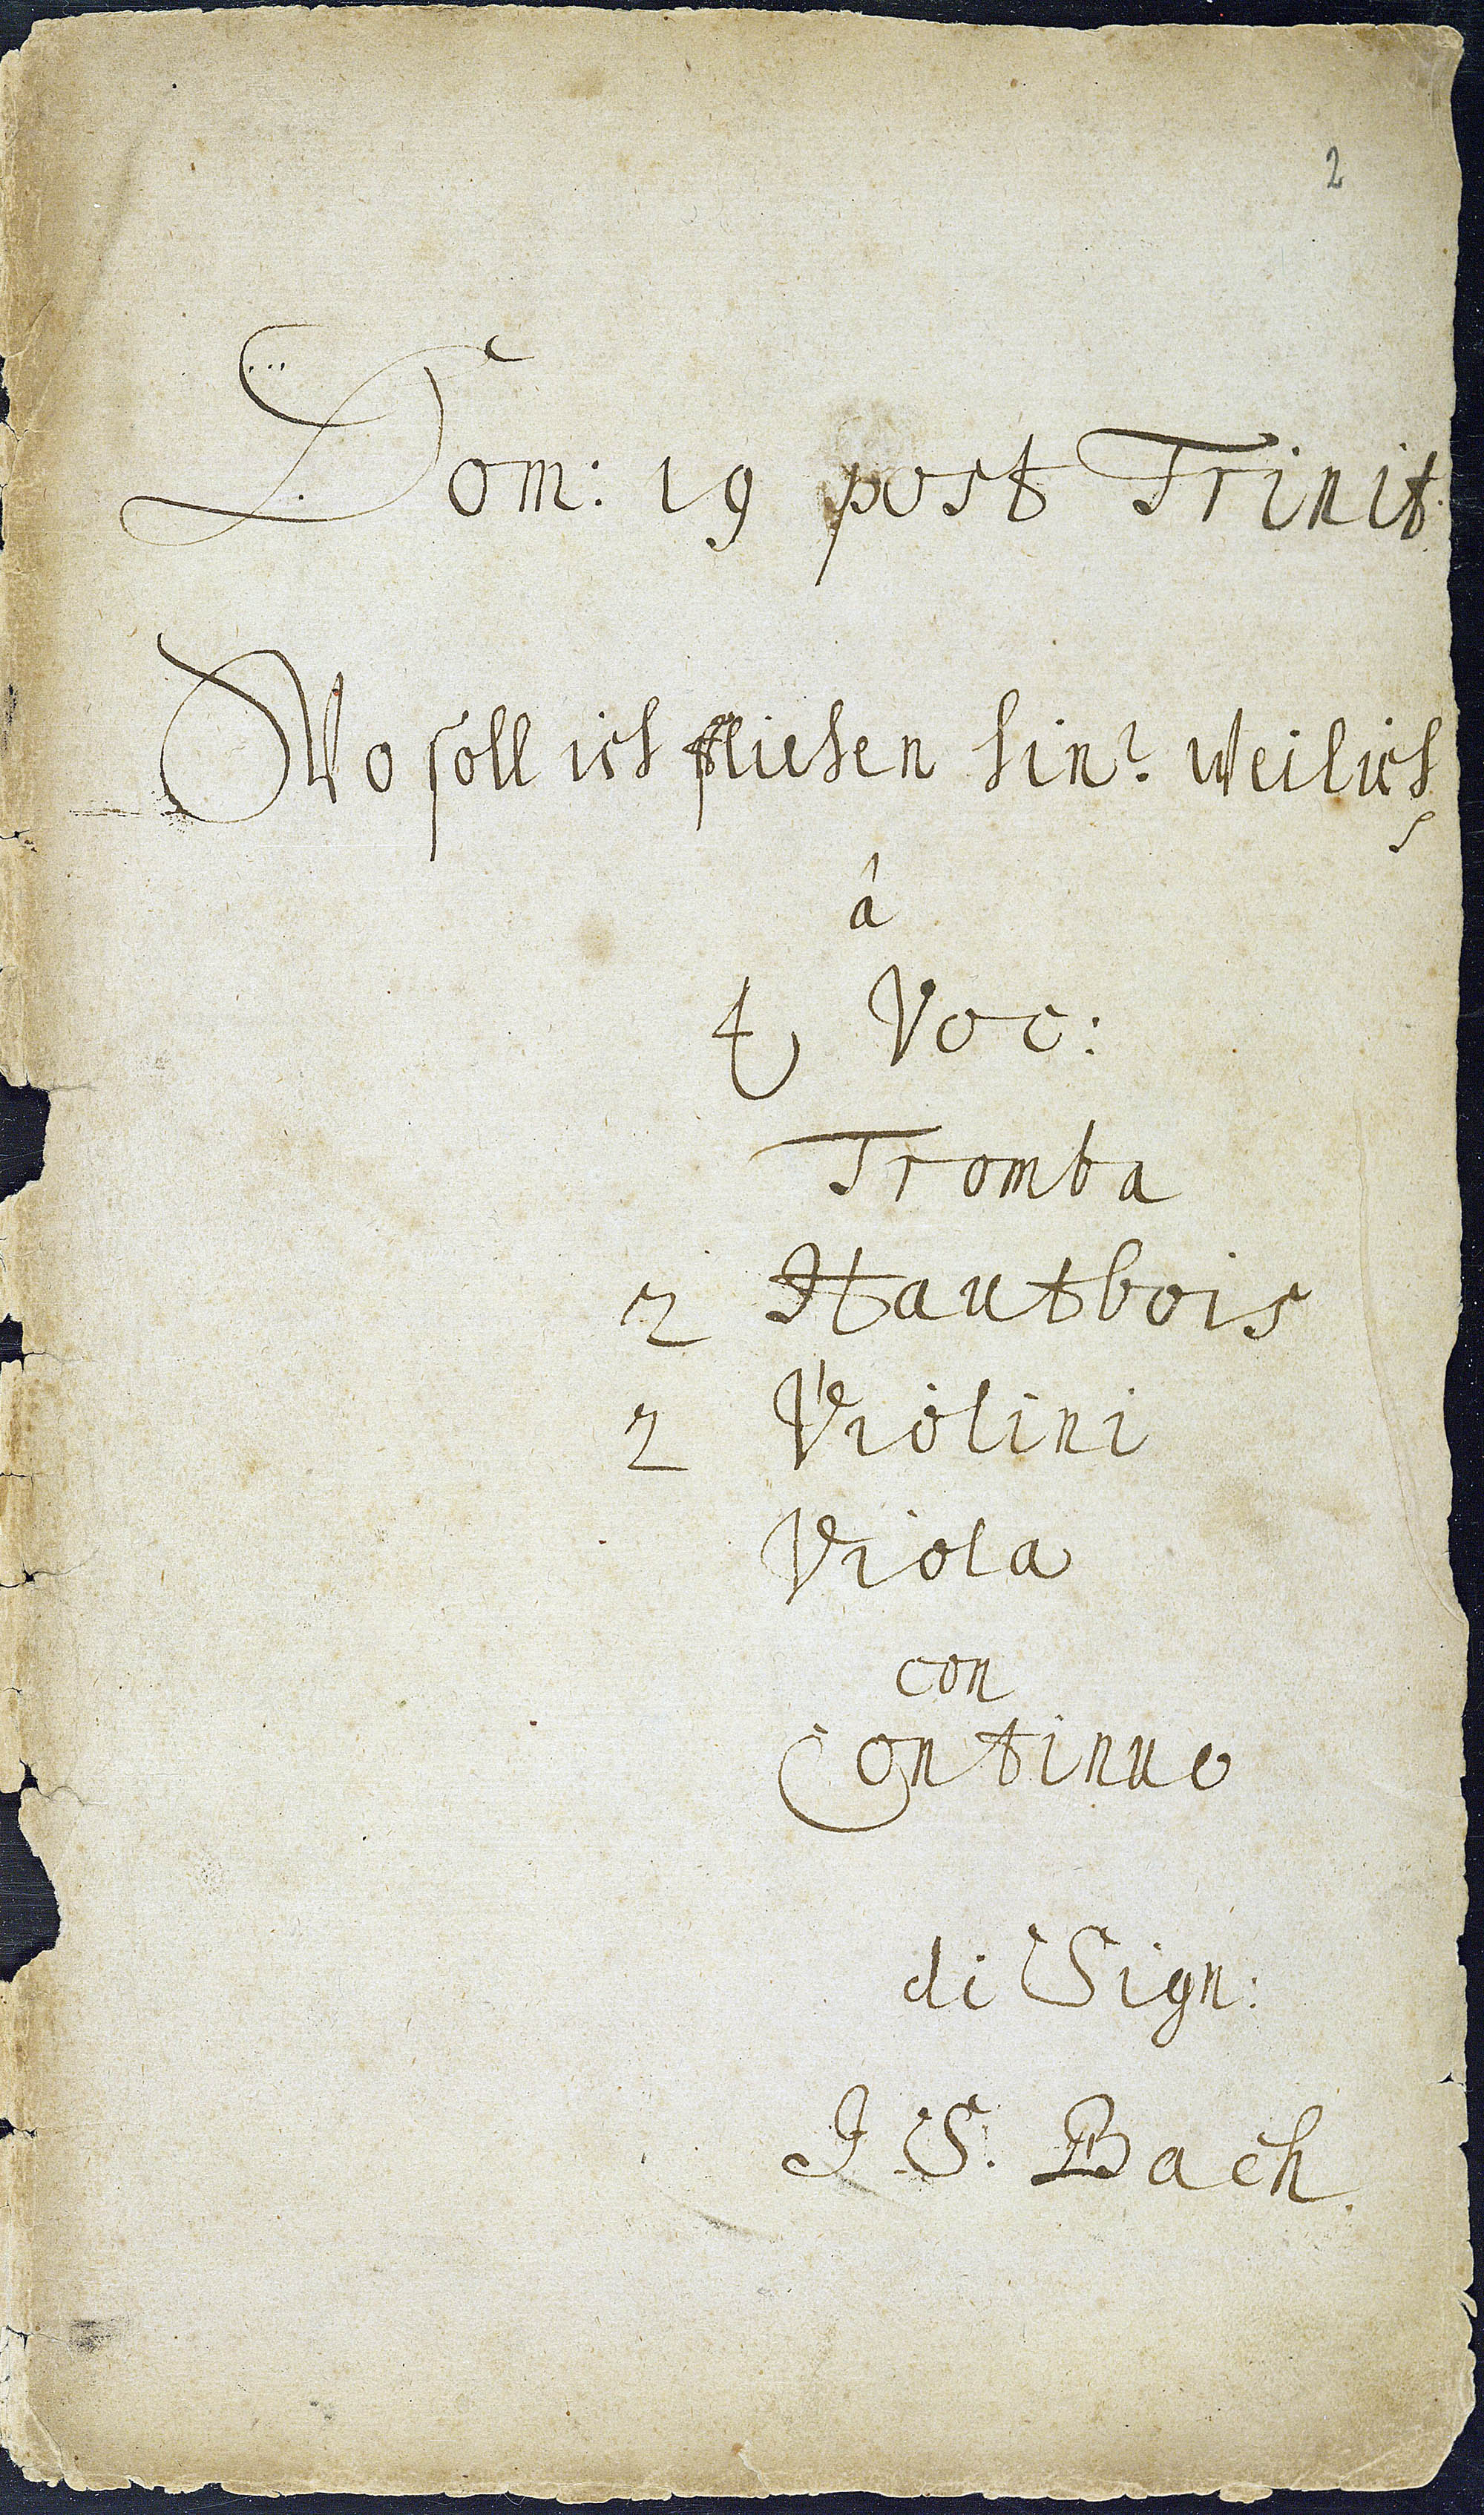 2
Dom: 19 post Trinit.
Wo soll ich fliehen hin? weil ich
â
4 Voc:
Tromba
2 Hautbois
2 Violini
Viola
con
Continuo
di Sign:
J. S. Bach.